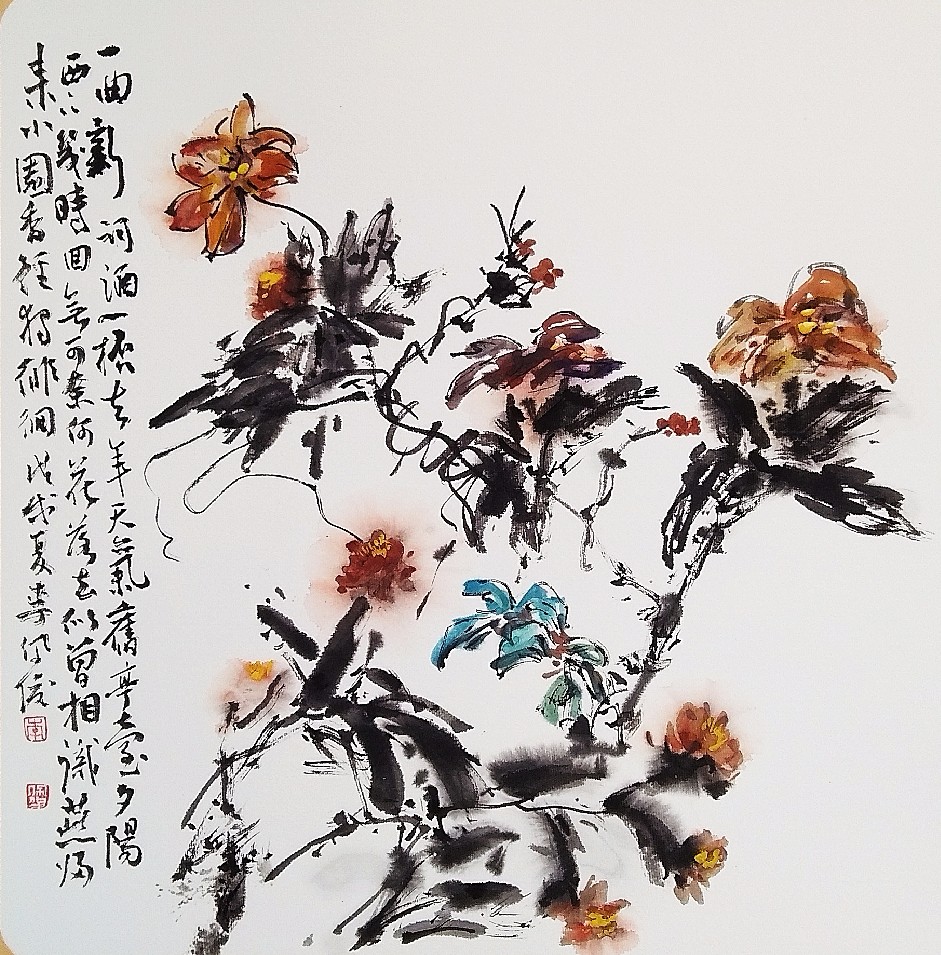 一曲新詞酒一杯去年天氣舊亭臺夕陽
西下幾時回無可奈何花落去似曾相識燕归
来小園香徑獨徘徊戊戌夏李
李